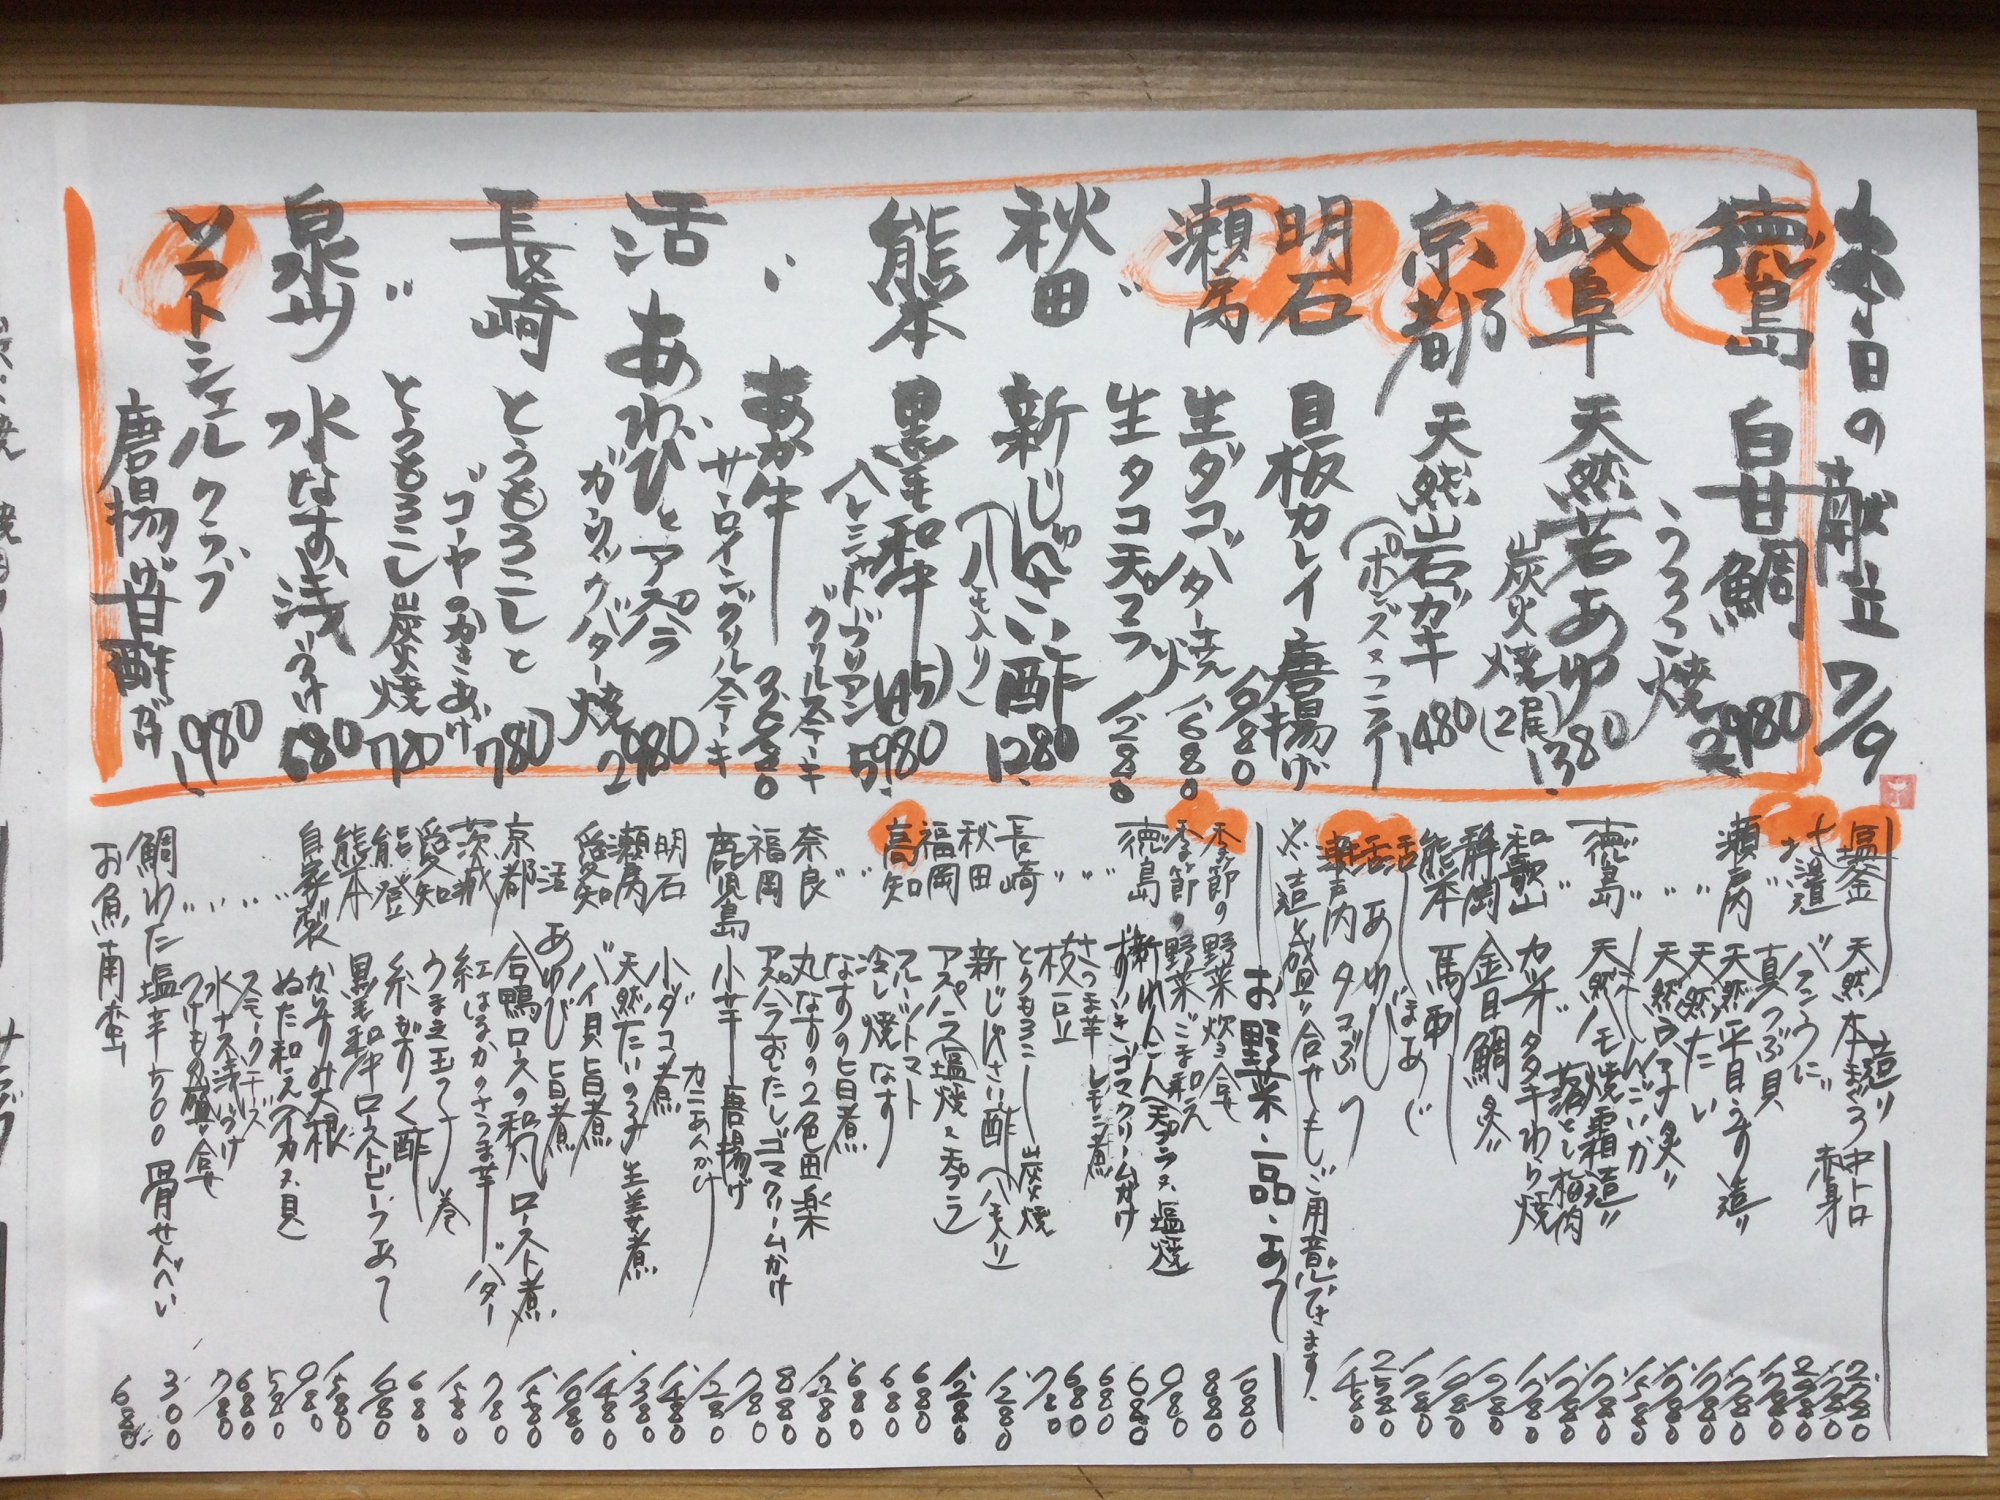 本日の献立 7/9
徳島 白甘鯛
うろこ焼 2,980
岐阜 天然若あゆ
炭火焼(2尾) 1,380
京都 天然岩ガキ 1,480
(ポンズ又フライ)
明石 目板カレイ唐揚げ 1,980
瀬戸内 生ダコバター焼 1,680
〃 生タコ天プラ 1,280
秋田 新じゅんさい酢 1,280
(ハモ入り)
熊本 黒毛和牛(A5) 5,980
ヘレシャトーブリアン
グリルステーキ
〃 あか牛
サーロイングリルステーキ
活 あわびとアスパラ 2,980
ガーリックバター焼
長崎 とうもろこしと
ゴーヤのかきあげ 780
〃 とうもろこし炭火焼 780
泉州 水なす浅づけ 680
ソフトシェルクラブ 1,980
唐揚げ甘酢がけ
造り
塩釜 天然本まぐろ 中トロ 2,780
赤身
北海道 バフンうに
〃 真つぶ貝
瀬戸内 天然平目うす造り
〃 天然たい
徳島 天然ハモ焼霜造り
落とし梅肉
和歌山 カツオタタキわら焼
静岡 金目鯛炙り
熊本 馬刺し
活 あじ
活 あわび
瀬戸内 タコぶつ
※造り盛り合せもご用意できます。
お野菜・一品・あて
季節の野菜炊き合せ 1,080
季節野菜ごま和え 880
〃 新れんこん(天プラ又塩焼) 980
徳島 ずいきゴマクリームがけ 680
〃 さつま芋レモン煮 680
〃 枝豆
長崎 とうもろこし炭火焼
秋田 新じゅんさい酢(ハモ入り) 1,280
福岡 アスパラ(塩焼又天プラ) 1,280
高知 フルーツトマト 680
〃 冷し焼なす 680
〃 なすの旨煮 680
奈良 丸なすの2色田楽 1,280
福岡 アスパラおひたしゴマクリームがけ 880
鹿児島 小芋唐揚げ 780
カニあんかけ 1,280
明石 小ダコ煮 1,480
瀬戸内 天然たいの子生姜煮 1,380
愛知 バイ貝旨煮 1,480
活 あわび旨煮
京都 合鴨ロースの和風ロースト煮 1,580
茨城 紅はるかのさつま芋バター 780
愛知 うまき玉子巻 1,580
能登 糸もずく酢 680
熊本 黒毛和牛ローストビーフあて
自家製 からすみ大根 1,580
〃 ぬた和え(イカ又貝) 980
〃 スモークチーズ 580
〃 水ナス浅づけ 680
〃 つけもの盛り合せ 780
鯛わた塩辛 500 骨せんべい 300
お魚南蛮 680